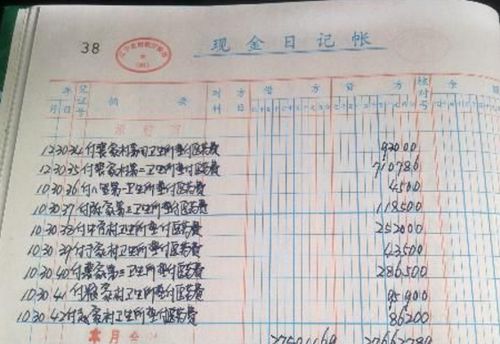 38
现金日记帐
年 凭证号 摘要 对方科目 借方 贷方 核对号 余额
月 日
承前页
12 30 34 付裴家村第四卫生所垫付医药费 92000
12 30 35 付裴家村第二卫生所垫付医药费 710780
10 30 36 付八里第一卫生所垫付医药费 4500
10 30 37 付 家第三卫生所垫付医药费 118500
10 30 38 付中农村卫生所垫付医药费 252000
10 30 39 付于家村卫生所垫付医药费 43500
10 30 40 付裴家第三卫生所垫付医药费 286500
10 30 41 付 家村卫生所垫付医药费 95900
10 30 42 付 家村卫生所垫付医药费 86200
本月合计 27501169 27662789